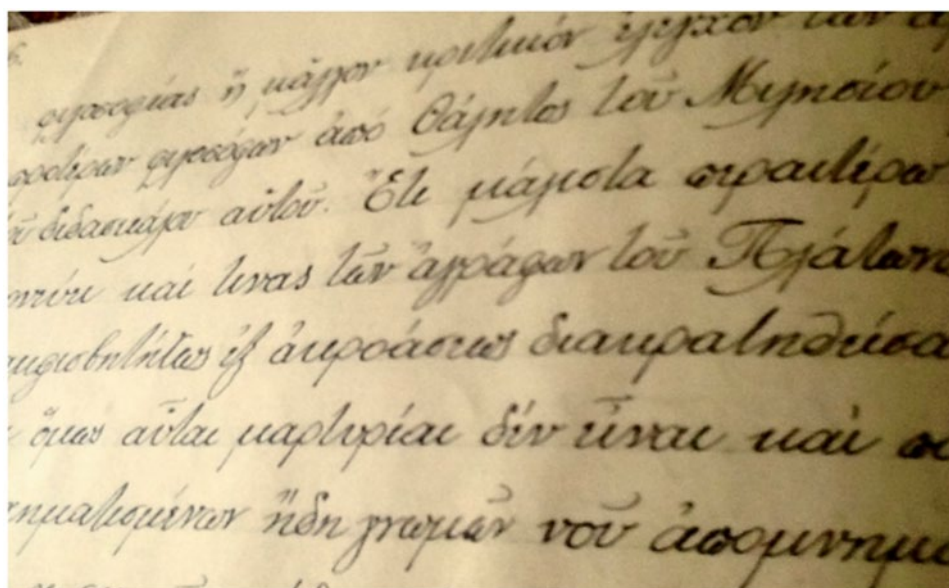 φιλοσοφίας ἢ μᾶλλον κριτικὸν ἔλεγχον τῶν
προτέρων φιλοσόφων ἀπὸ Θάλητος τοῦ Μιλησίου
τοῦ διδασκάλου αὐτοῦ. Ἔτι μάλιστα περαιτέρω
καί τινας τῶν ἀγράφων τοῦ Πλάτωνο
ἀμφισβητήτως ἐξ ἀκροάσεως διακρατηθείσα
ὅμως αὗται μαρτυρίαι δὲν εἶναι καὶ
σχηματισμένων ἤδη γνωμῶν τοῦ ἀπομνημο